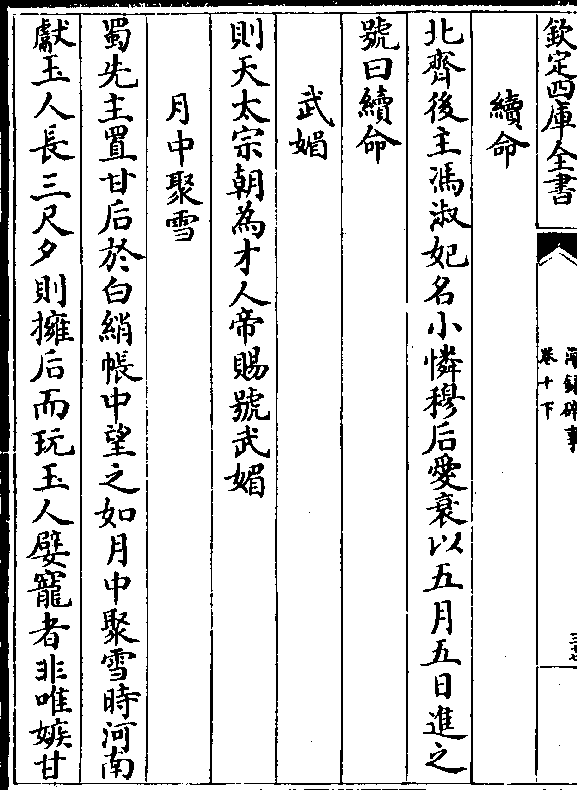 欽定四庫全書
卷十下
續命
北齊後主馮淑妃名小憐穆后愛衰以五月五日進之
號曰續命
武媚
則天太宗朝為才人帝賜號武媚
月中聚雪
蜀先主置甘后於白綃帳中望之如月中聚雪時河南
獻玉人長三尺夕則擁后而玩玉人嬖寵者非唯嫉甘